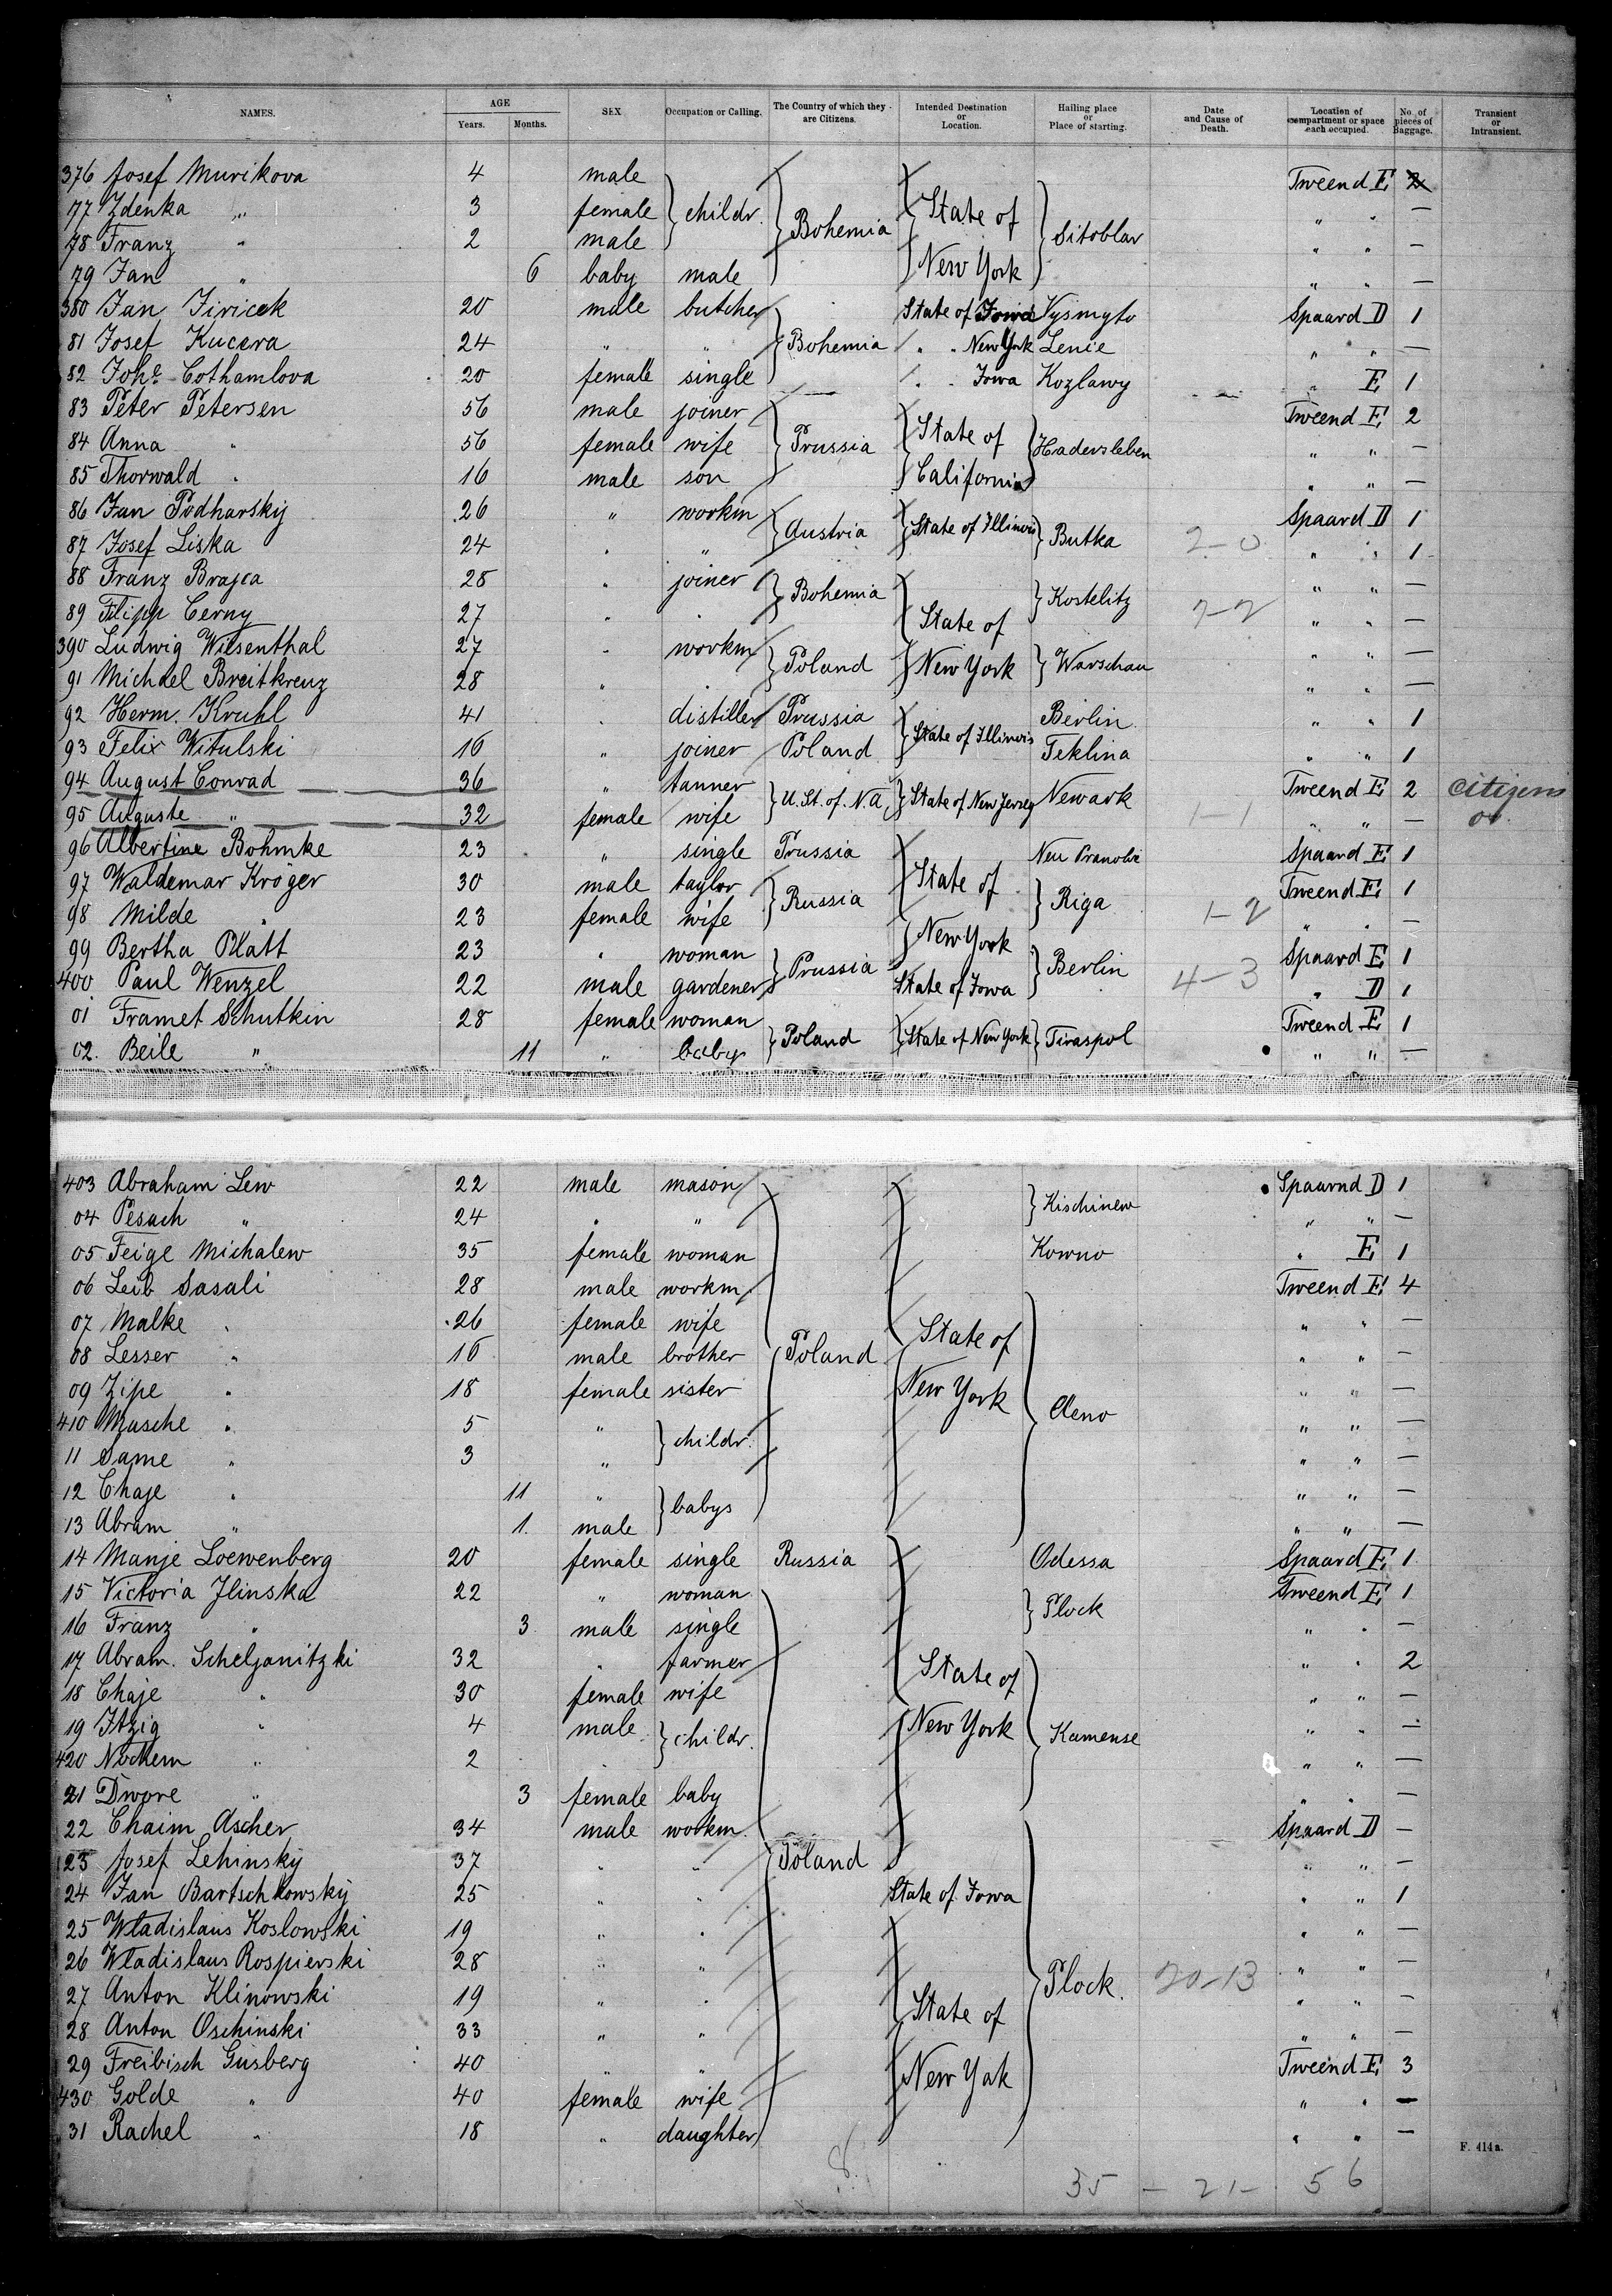 NAMES. AGE Years. Months. SEX Occupation or Calling. The Country of which they are Citizens. Intended Destination or Location. Hailing place or Place of starting. Date and Cause of Death. Location of compartment or space each occupied. No. of pieces of Baggage. Transient or Intransient.
376 Josef Murikova 4 male } childr. } Bohemia } State of New York } Sitoblav Tweend E 2
77 Zdenka " 3 female " " —
78 Franz " 2 male " " —
79 Jan " 6 baby male " " —
380 Jan Jiricek 20 male butcher } Bohemia State of Iowa Vysmyto Spaard D 1
81 Josef Kucera 24 " " " " New York Lenie " " —
82 Johe Cothamlova 20 female single — " " Iowa Kozlawy " E 1
83 Peter Petersen 56 male joiner } Prussia } State of California } Hadersleben Tweend E 2
84 Anna " 56 female wife " " —
85 Thorwald " 16 male son " " —
86 Jan Podharsky 26 " workm } Austria } State of Illinois } Butka Spaard D 1
87 Josef Liska 24 " " 2-0 " " 1
88 Franz Brajca 28 " joiner } Bohemia } State of New York } Kostelitz " " —
89 Filipp Cerny 27 " " 2-2 " " —
390 Ludwig Wiesenthal 27 " workm } Poland } Warschau " " —
91 Michael Breitkreuz 28 " " " " —
92 Herm. Kruhl 41 " distiller Prussia } State of Illinois Berlin " " 1
93 Felix Witulski 16 " joiner Poland Teklina " " 1
94 August Conrad 36 " tanner } U. St. of. N. A. } State of New Jersey Newark Tweend E 2 citizens
95 Auguste " 32 female wife 1-1 " " —
96 Albertine Bohmke 23 " single Prussia } State of New York Neu Spaard E 1
97 Waldemar Kröger 30 male taylor } Russia } Riga Tweend E 1
98 Milde " 23 female wife 1-2 " " —
99 Bertha Platt 23 " woman } Prussia } Berlin Spaard E 1
400 Paul Wenzel 22 male gardener State of Iowa 4-3 " D 1
01 Framet Schutkin 28 female woman } Poland } State of New York } Tiraspol Tweend E 1
02. Beile " 11 " baby " " —
403 Abraham Lew 22 male mason } Poland } State of New York } Kischinew Spaarnd D 1
04 Pesach " 24 " " " " —
05 Feige Michalew 35 female woman Kowno " E 1
06 Leib Sasali 28 male workm. } Cleno Tweend E 4
07 Malke " 26 female wife " " —
08 Lesser " 16 male brother " " —
09 Zipe " 18 female sister " " —
410 Musche " 5 " } childr. " " —
11 Same " 3 " " " —
12 Chaje " 11 " } babys " " —
13 Abram " 1. male " " —
14 Manje Loewenberg 20 female single Russia } State of New York Odessa Spaard E 1
15 Victoria Jlinska 22 " woman } Poland } Plock Tweend E 1
16 Franz " 3 male single " " —
17 Abram. Scheljanitzki 32 " farmer } Kamense " " 2
18 Chaje " 30 female wife " " —
19 Itzig " 4 male } childr. " " —
420 Nochem " 2 " " " —
21 Dwore " 3 female baby " " —
22 Chaim Ascher 34 male workm. } Plock. Spaard D —
23 Josef Lehinsky 37 " " " " —
24 Jan Bartschkowsky 25 " " State of Iowa " " 1
25 Wladislaus Koslowski 19 " " } State of New Yok " " —
26 Wladislaus Rospierski 28 " " 20-13 " " —
27 Anton Klinowski 19 " " " " —
28 Anton Oschinski 33 " " " " —
29 Freibisch Gusberg 40 " " Tweend E 3
430 Golde " 40 female wife " " —
31 Rachel " 18 " daughter " " —
F. 414a.
8
35 — 21 — 56